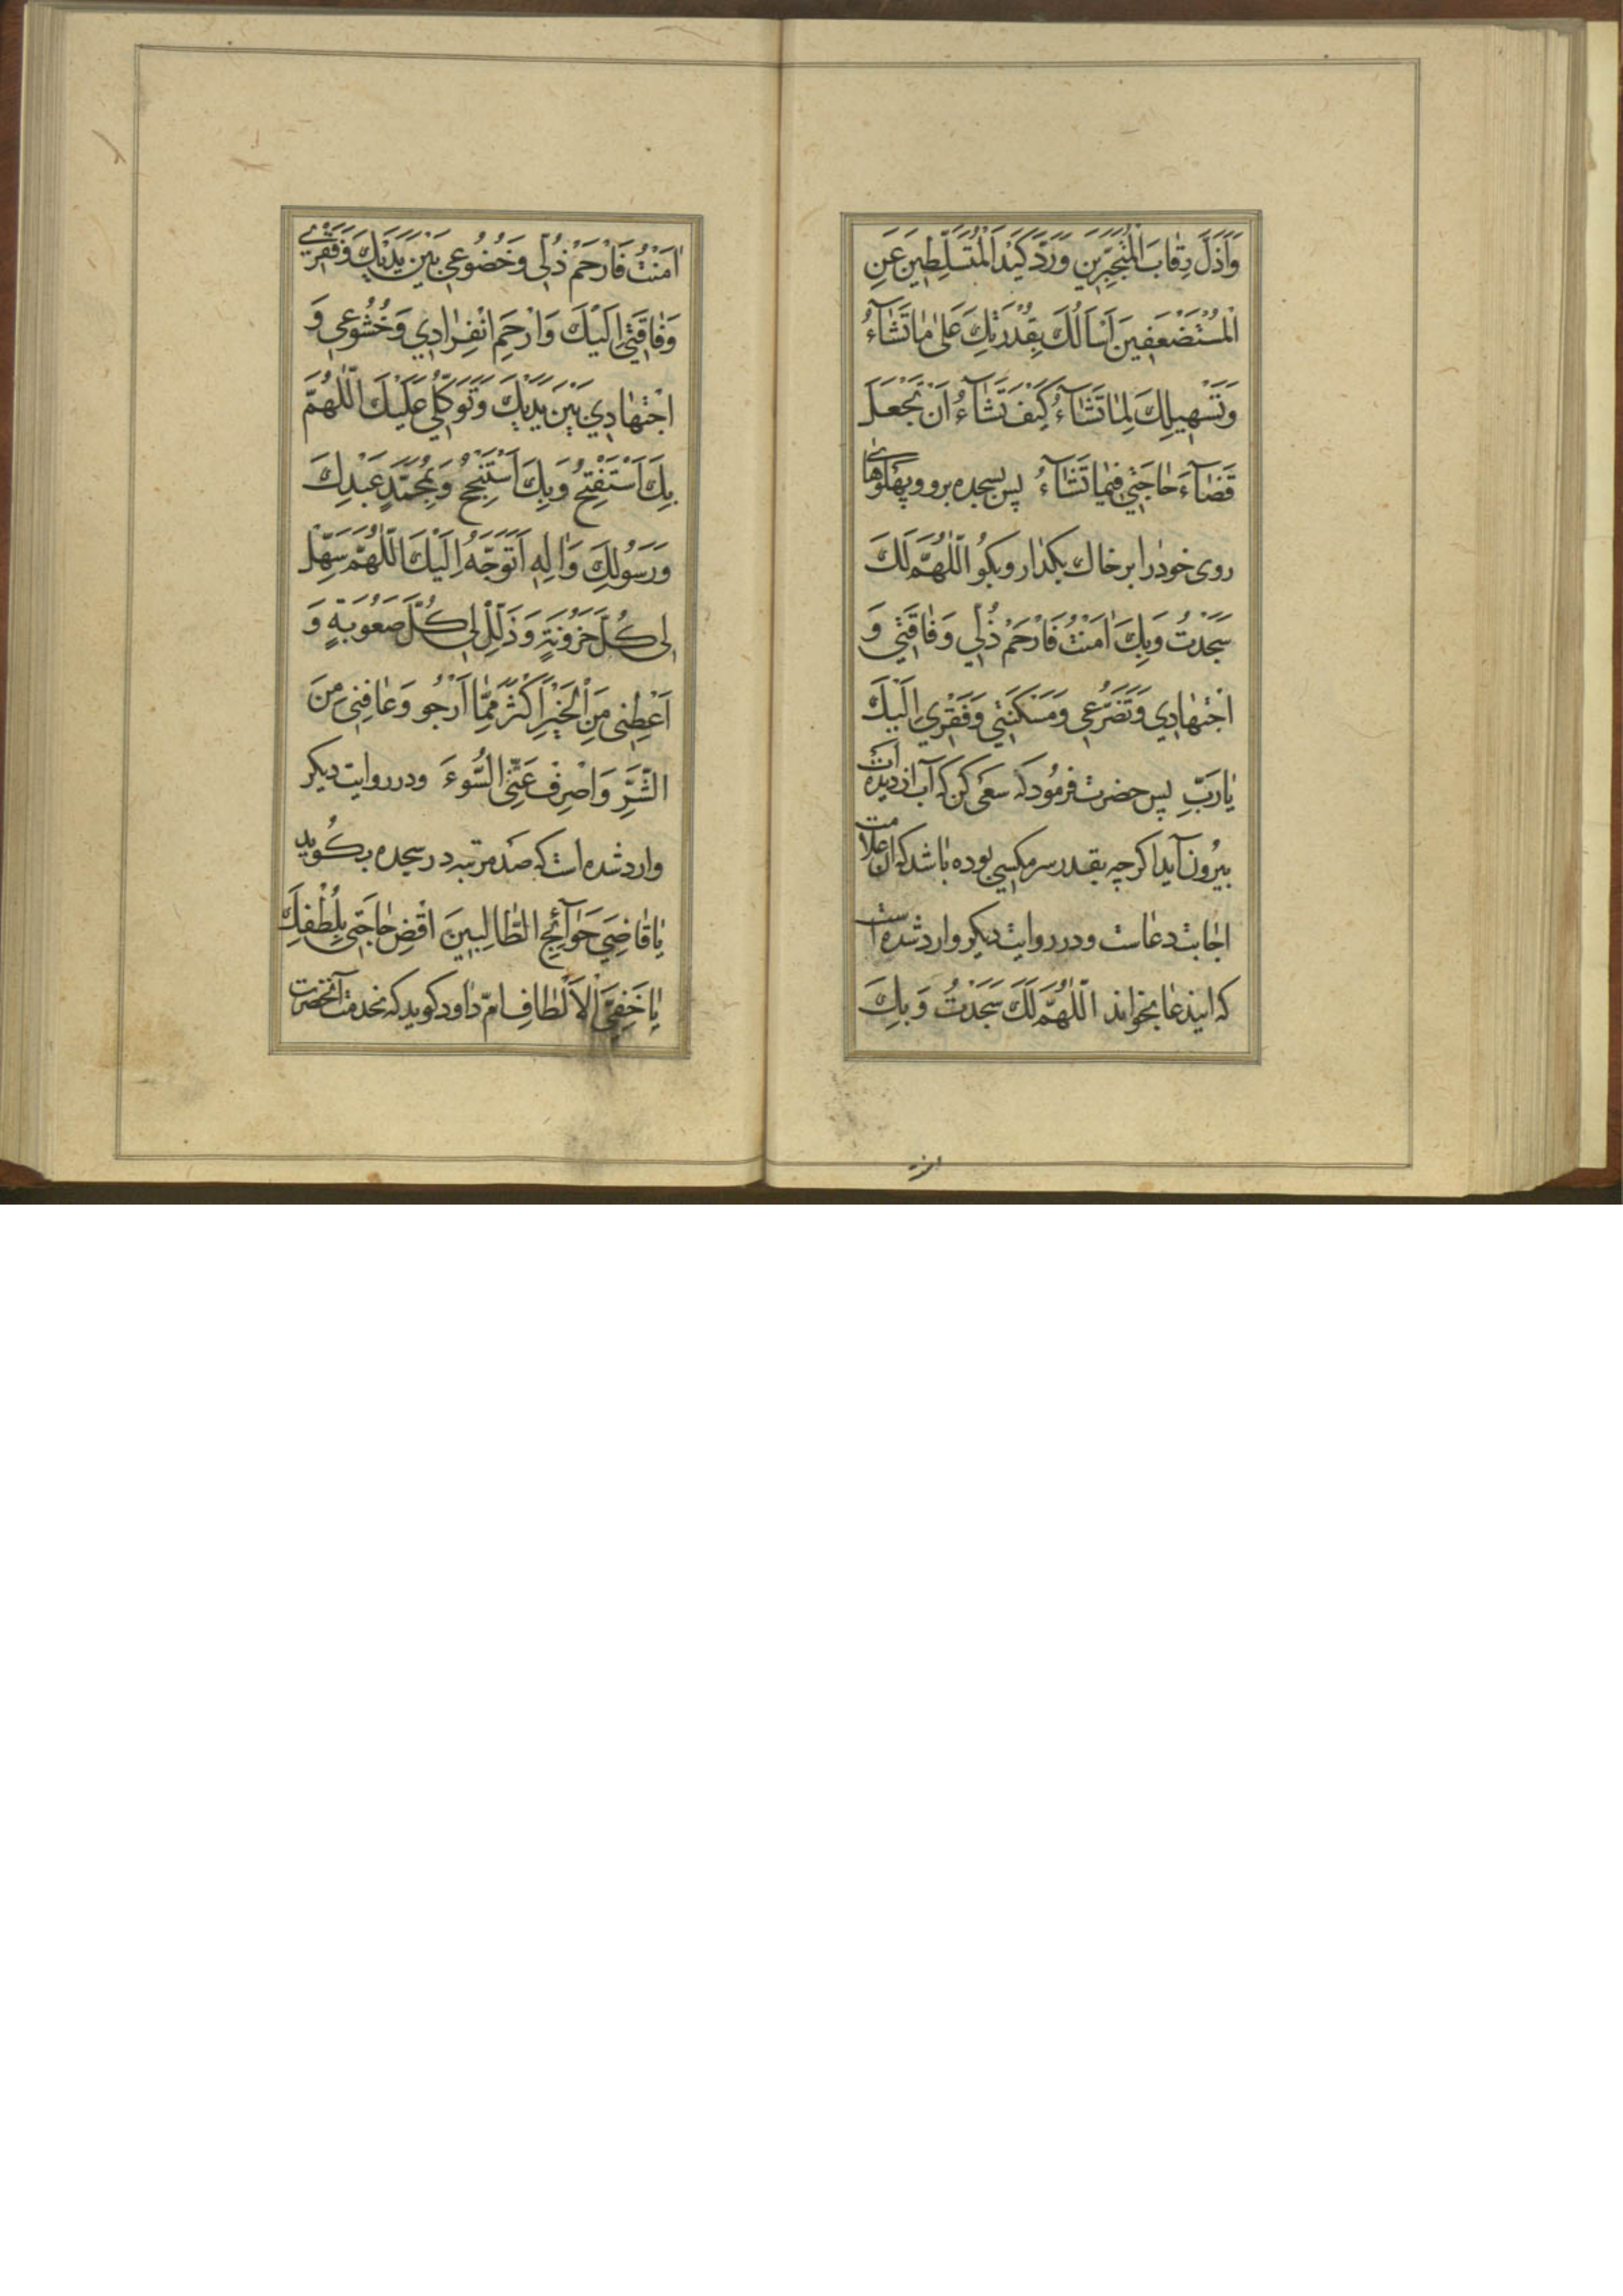 وَاَذَلَّ رِقٰابَ الْمُتَجَبِّرِینَ وَرَدَّ کَیْدَ الْمُتَسَلِّطِینَ عَنِ
الْمُسْتَضْعَفِینَ اَسْاَلُكَ بِقُدْرَتِكَ عَلیٰ مٰا تَشٰآءُ
وَتَسْهِیلِكَ لِمٰا تَشٰآءُ کَیْفَ تَشٰآءُ اَنْ تَجْعَلَ
قَضٰآءَ حٰاجَتِي فِیمٰا تَشٰآءُ پس بسجده برو وپهلوهای
روی خود را بر خاك بکذار وبکو اَللّٰهُمَّ لَكَ
سَجَدْتُ وَبِكَ اٰمَنْتُ فَارْحَمْ ذُلِّي وَفٰاقَتِي وَ
اجْتِهٰادِي وَتَضَرُّعِي وَمَسْکَنَتِي وَفَقْرِي اِلَیْكَ
یٰا رَبِّ پس حضرت فرمود که سعی کن که آب از دیده ات
بیرون آید اکرچه بقدر سر مکسی بوده باشد که ان علامت
اجابت دعاست ودر روایت دیکر وارد شده است
که ایندعا بخواند اَللّٰهُمَّ لَكَ سَجَدْتُ وَبِكَ
اٰمَنْتُ فَارْحَمْ ذُلِّي وَخُضُوعِي بَیْنَ یَدَیْكَ وَفَقْرِي
وَفٰاقَتِي اِلَیْكَ وَارْحَمِ انْفِرٰادِي وَخُشُوعِي وَ
اجْتِهٰادِي بَیْنَ یَدَیْكَ وَتَوَکُّلِي عَلَیْكَ اَللّٰهُمَّ
بِكَ اَسْتَفْتِحُ وَبِكَ اَسْتَنْجِحُ وَبِمُحَمَّدٍ عَبْدِكَ
وَرَسُولِكَ وَاٰلِهِ اَتَوَجَّهُ اِلَیْكَ اَللّٰهُمَّ سَهِّلْ
لِی کُلَّ حَزُونَةٍ وَذَلِّلْ لِی کُلَّ صَعُوبَةٍ وَ
اَعْطِنِی مِنَ الْخَیْرِ اَکْثَرَ مِمّٰا اَرْجُو وَعٰافِنِی مِنَ
الشَّرِّ وَاصْرِفْ عَنِّی السُّوءَ ودر روایت دیکر
وارد شده است که صد مرتبه در سجده بکوید
یٰا قٰاضِيَ حَوٰآئِجِ الطّٰالِبِینَ اقْضِ حٰاجَتِی بِلُطْفِكَ
یٰا خَفِيَّ الْاَلْطٰافِ امّ داود کوید که بخدمت آنحضرت